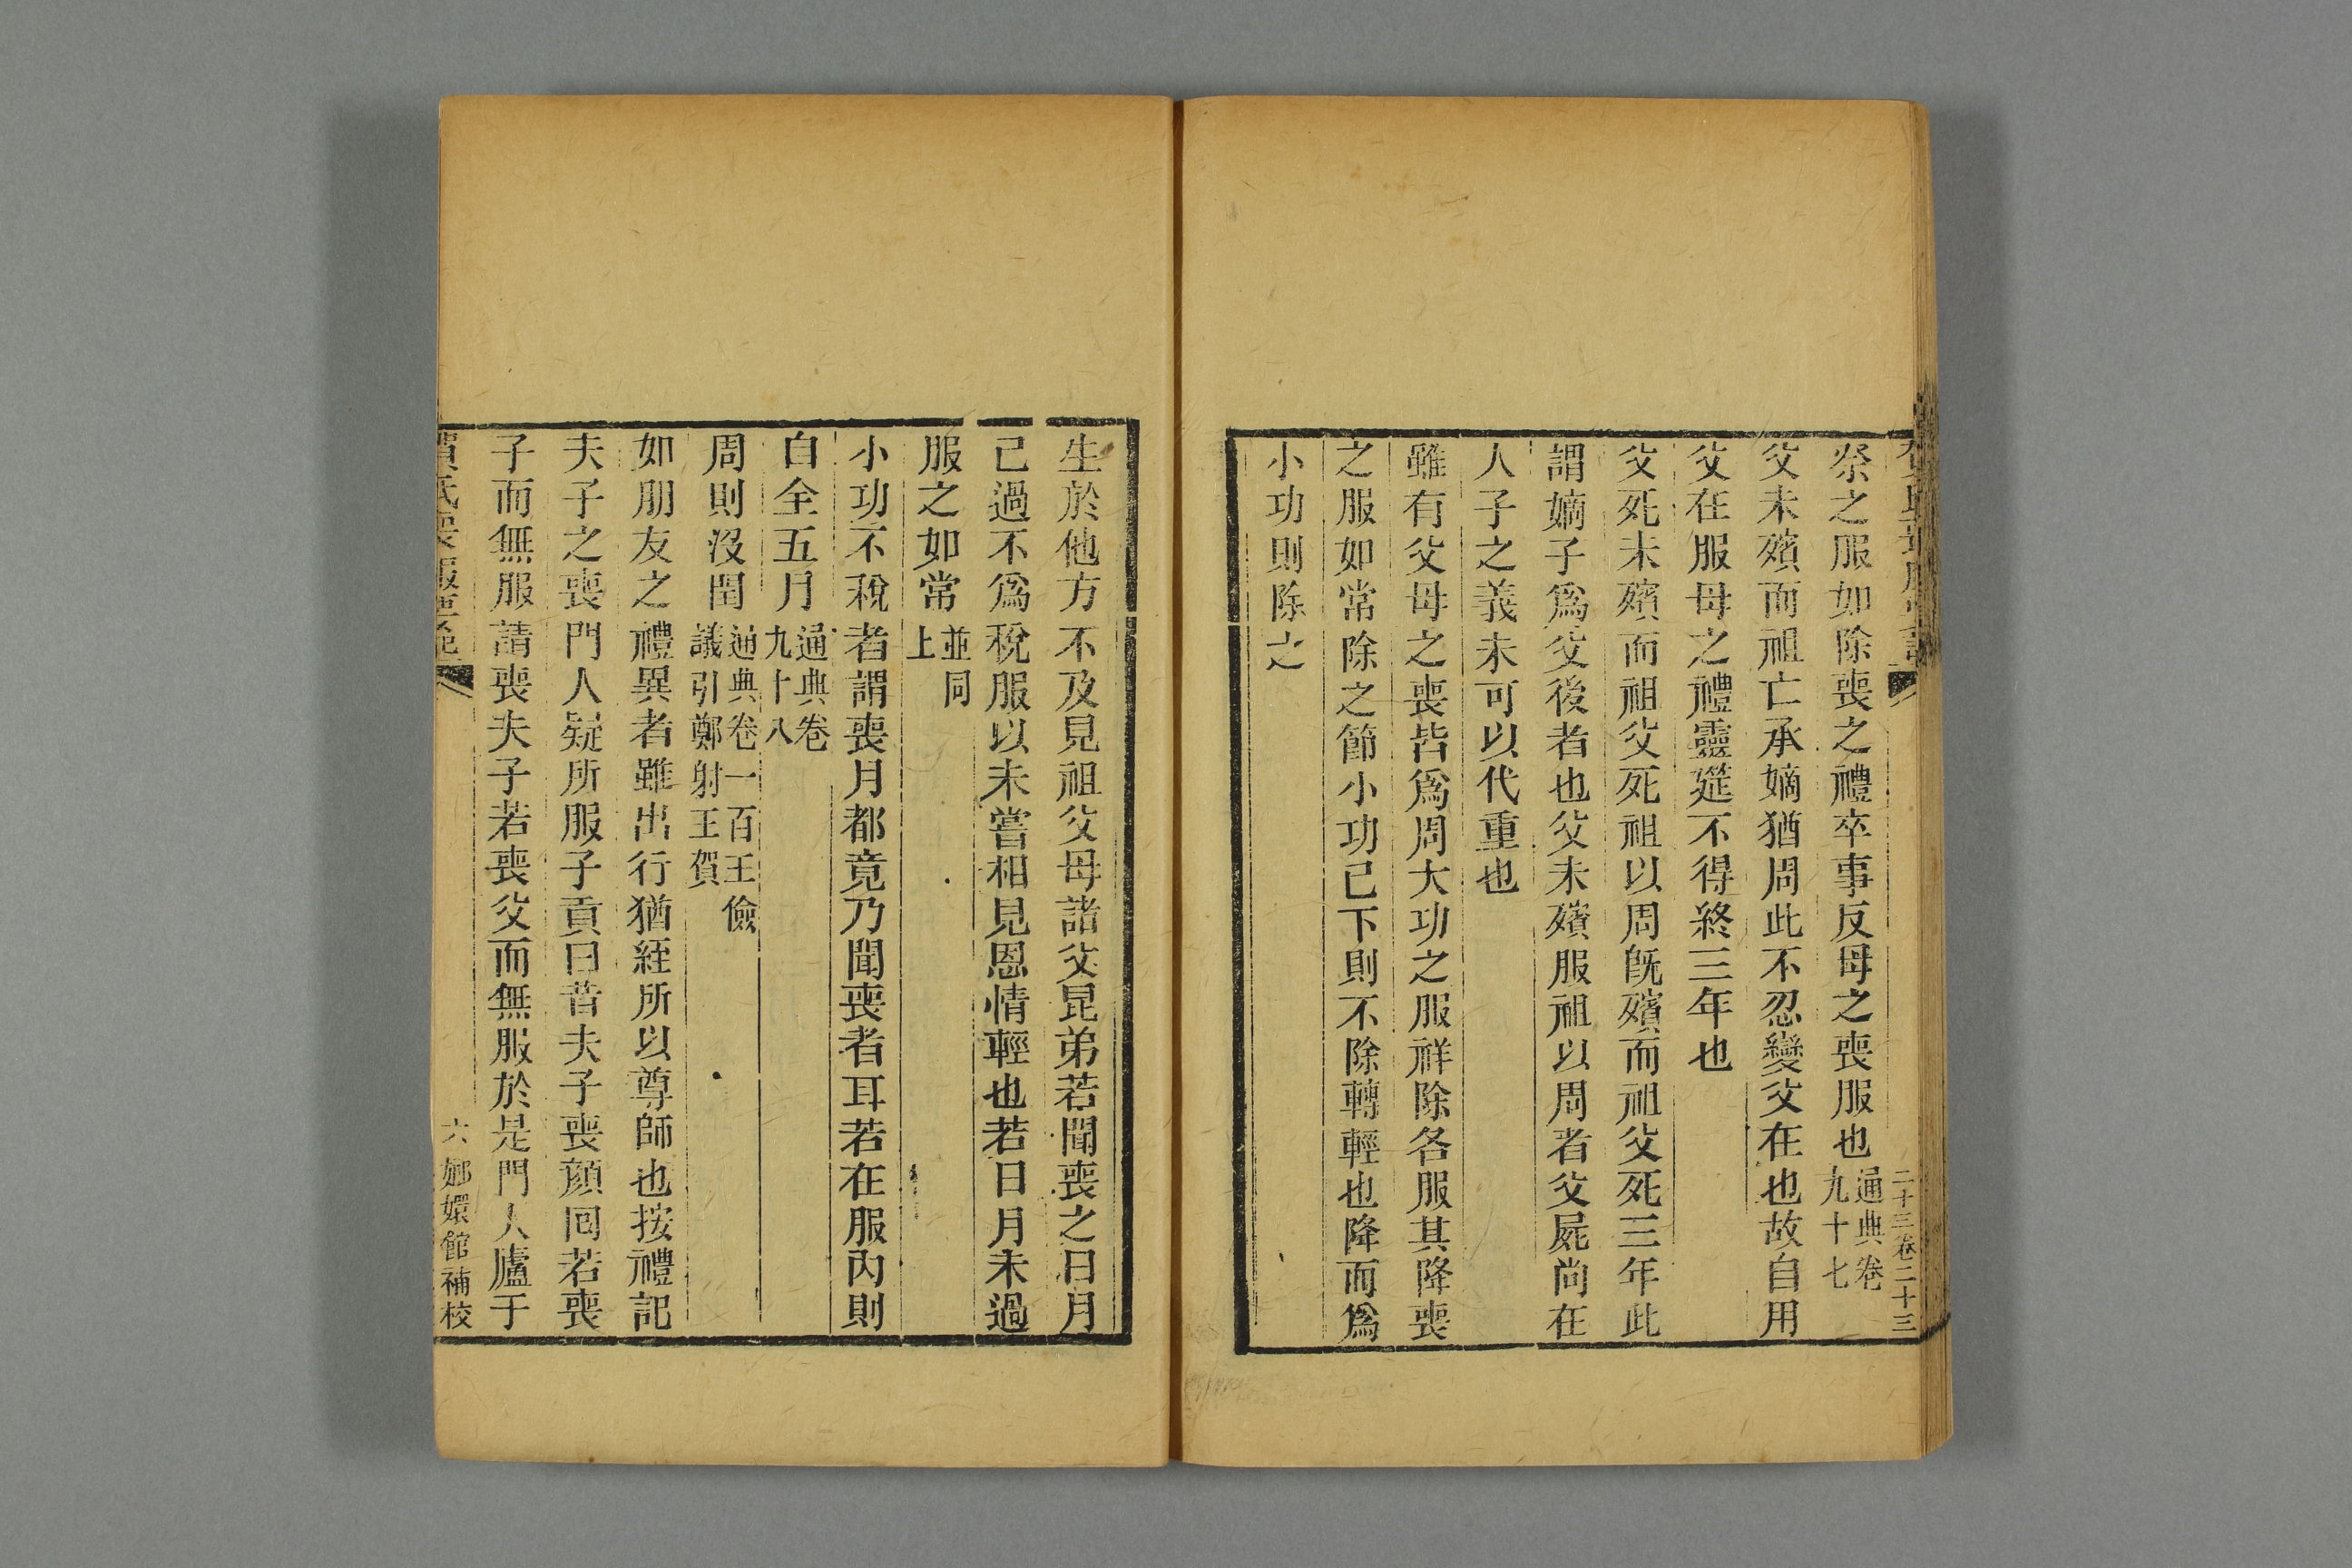 二十三卷二十三
祭之服如除喪之禮卒事反母之喪服也通典卷九十七
父未殯而祖亡承嫡猶周此不忍變父在也故自用
父在服母之禮靈筵不得終三年也
父死未殯而祖父死祖以周旣殯而祖父死三年此
謂嫡子爲父後者也父未殯服祖以周者父屍尚在
人子之義未可以代重也
雖有父母之喪皆爲周大功之服祥除各服其降喪
之服如常除之節小功已下則不除轉輕也降而爲
小功則除之
生於他方不及見祖父母諸父昆弟若聞喪之日月
已過不爲稅服以未嘗相見恩情輕也若日月未過
服之如常並同上
小功不稅者謂喪月都竟乃聞喪者耳若在服內則
自全五月通典卷九十八
周則沒閏通典卷一百王儉議引鄭射王賀
如朋友之禮異者雖出行猶絰所以尊師也按禮記
夫子之喪門人疑所服子貢曰昔夫子喪顏回若喪
子而無服請喪夫子若喪父而無服於是門人廬于
賀氏喪服要記
六 嫏嬛館補校